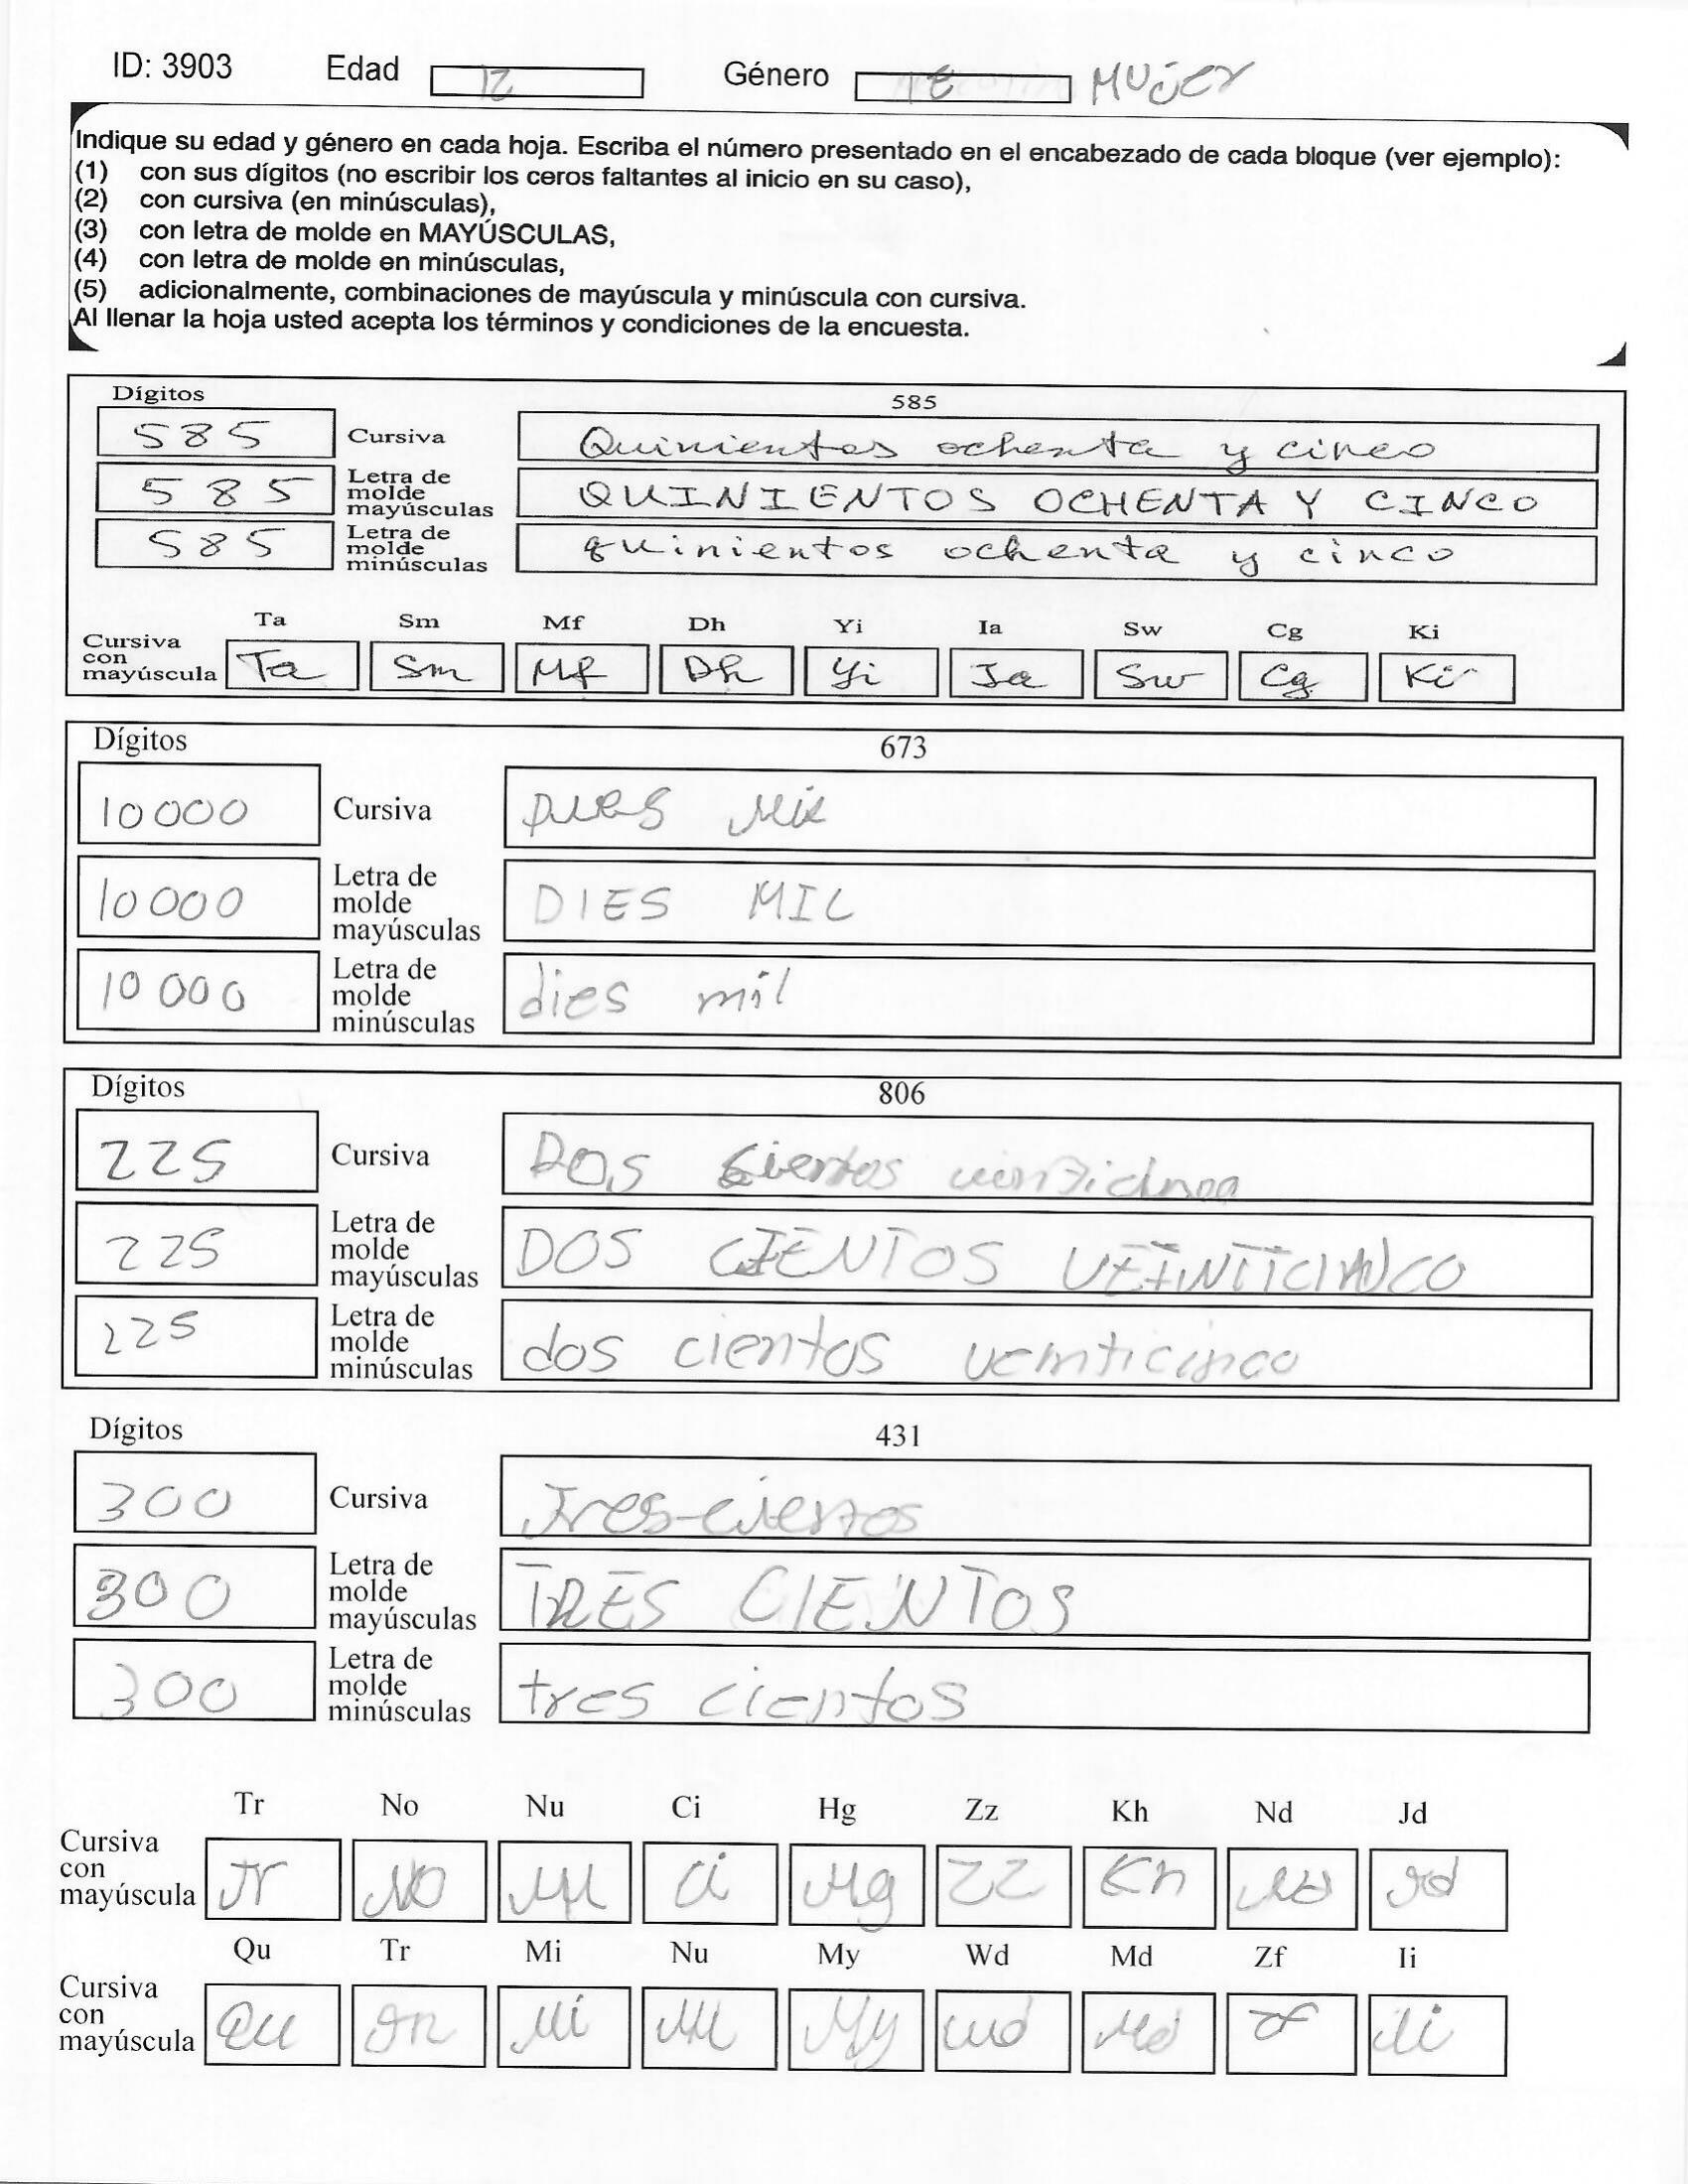 ID: 3903 Edad 12 Género MUJER
Indique su edad y género en cada hoja. Escriba el número presentado en el encabezado de cada bloque (ver ejemplo):
(1) con sus dígitos (no escribir los ceros faltantes al inicio en su caso),
(2) con cursiva (en minúsculas),
(3) con letra de molde en MAYÚSCULAS,
(4) con letra de molde en minúsculas,
(5) adicionalmente, combinaciones de mayúscula y minúscula con cursiva.
Al llenar la hoja usted acepta los términos y condiciones de la encuesta.
Dígitos 585
585 Cursiva Quinientos ochenta y cinco
585 Letra de molde mayúsculas QUINIENTOS OCHENTA Y CINCO
585 Letra de molde minúsculas quinientos ochenta y cinco
Ta Sm Mf Dh Yi Ia Sw Cg Ki
Cursiva con mayúscula Ta Sm Mf Dh Yi Ia Sw Cg Ki
Dígitos 673
10000 Cursiva Dies Mil
10000 Letra de molde mayúsculas DIES MIL
10 000 Letra de molde minúsculas dies mil
Dígitos 806
225 Cursiva Dos cientos
225 Letra de molde mayúsculas DOS CIENTOS VEINTICINCO
225 Letra de molde minúsculas dos cientos veinticinco
Dígitos 431
300 Cursiva Tres-cientos
300 Letra de molde mayúsculas TRES CIENTOS
300 Letra de molde minúsculas tres cientos
Tr No Nu Ci Hg Zz Kh Nd Jd
Cursiva con mayúscula Tr No Nu Ci Hg Zz Kh Nd Jd
Qu Tr Mi Nu My Wd Md Zf Ii
Cursiva con mayúscula Qu Mi Nu My Wd Md Zf Ii